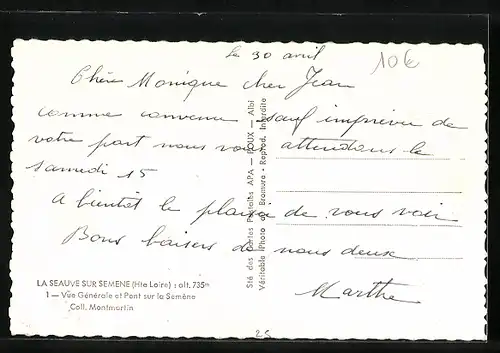 Le 30 avril
10€
Chère Monique cher Jean
comme convenu sauf imprévu de
votre part nous vous attendons le
samedi 15
A bientôt le plaisir de vous voir
Bons baisers de nous deux
Marthe
LA SEAUVE SUR SEMENE (Hte Loire) : alt. 735m
1 — Vue Générale et Pont sur la Semène
Coll. Montmartin
Sté des Cartes Postales APA — POUX — Albi
Véritable Photo au Bromure - Reprod. Interdite
25